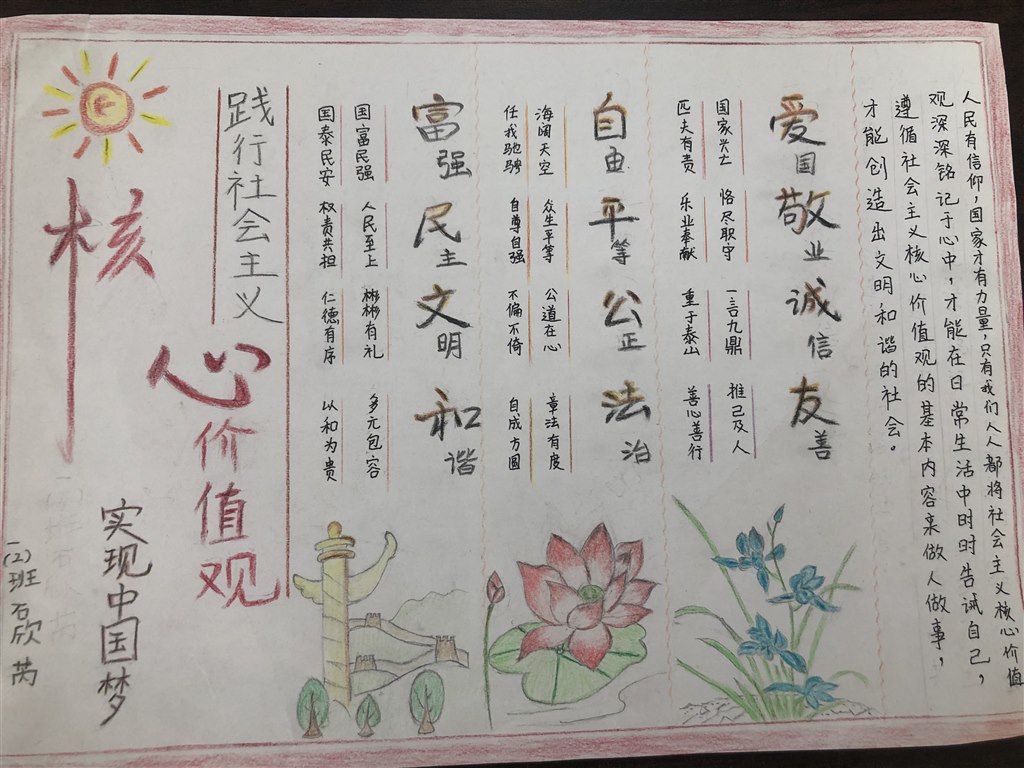 人民有信仰,国家才有力量,只有我们人人都将社会主义核心价值
观深深铭记于心中,才能在日常生活中时时告诫自己,
遵循社会主义核心价值观的基本内容来做人做事,
才能创造出文明和谐的社会。
爱国 敬业 诚信 友善
国家兴亡 恪尽职守 一言九鼎 推己及人
匹夫有责 乐业奉献 重于泰山 善心善行
自由 平等 公正 法治
海阔天空 众生平等 公道在心 章法有度
任我驰骋 自尊自强 不偏不倚 自成方圆
富强 民主 文明 和谐
国富民强 人民至上 彬彬有礼 多元包容
国泰民安 权责共担 仁德有序 以和为贵
践行社会主义
核心价值观
实现中国梦
一(2)班 石欣芮